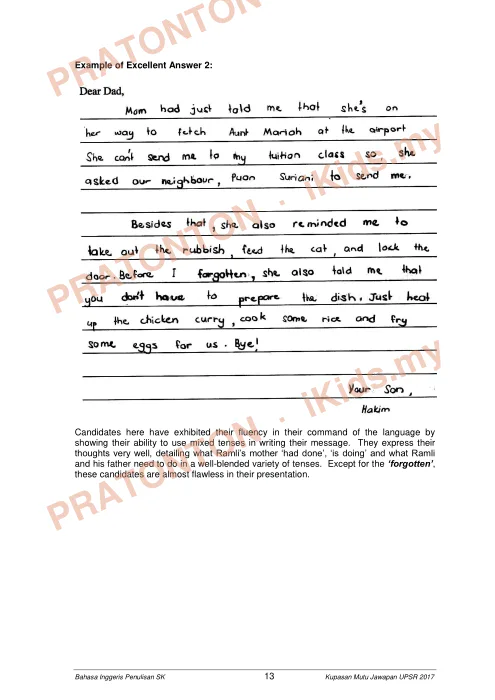 Example of Excellent Answer 2:
Dear Dad,
Mom had just told me that she's on
her way to fetch Aunt Mariah at the airport
She can't send me to my tuition class so she
asked our neighbour, Puan Suriani to send me.
Besides that, she also reminded me to
take out the rubbish, feed the cat, and lock the
door. Before I forgotten, she also told me that
you don't have to prepare the dish. Just heat
up the chicken curry, cook some rice and fry
some eggs for us. Bye!
Your Son,
Hakim
Candidates here have exhibited their fluency in their command of the language by
showing their ability to use mixed tenses in writing their message. They express their
thoughts very well, detailing what Ramli's mother 'had done', 'is doing' and what Ramli
and his father need to do in a well-blended variety of tenses. Except for the 'forgotten',
these candidates are almost flawless in their presentation.
PRATONTON
PRATONTON . iKids.my
PRATONTON . iKids.my
Bahasa Inggeris Penulisan SK 13 Kupasan Mutu Jawapan UPSR 2017